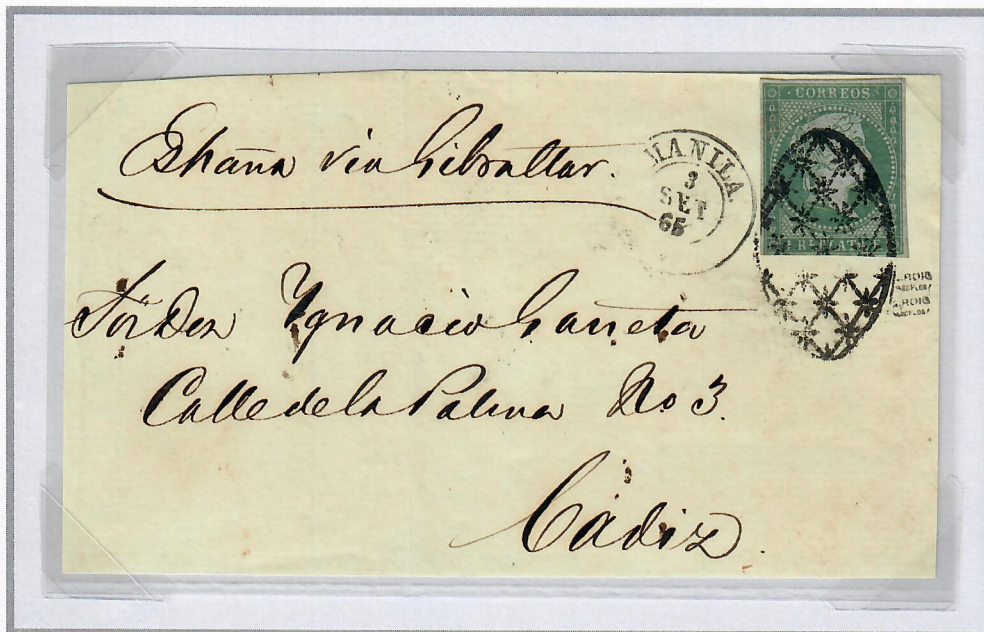 España via Gibraltar.
MANILA
3
SET
65
CORREOS
1 RL PLATA F
Sōr Don Ygnacio Cañeta
Calle de la Palma No 3.
Cádiz.
A. ROIG
A. ROIG